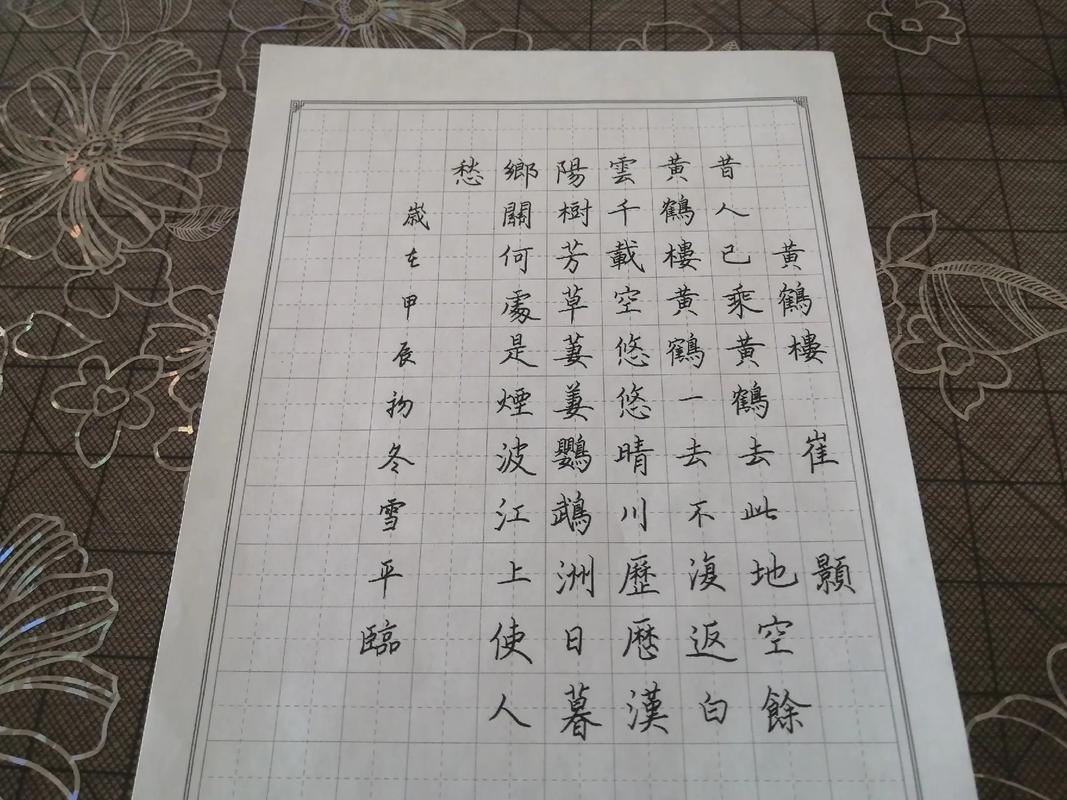 黃鶴樓 崔顥
昔人已乘黃鶴去此地空餘
黃鶴樓黃鶴一去不復返白
雲千載空悠悠晴川歷歷漢
陽樹芳草萋萋鸚鵡洲日暮
鄉關何處是煙波江上使人
愁
歲在甲辰初冬雪平臨